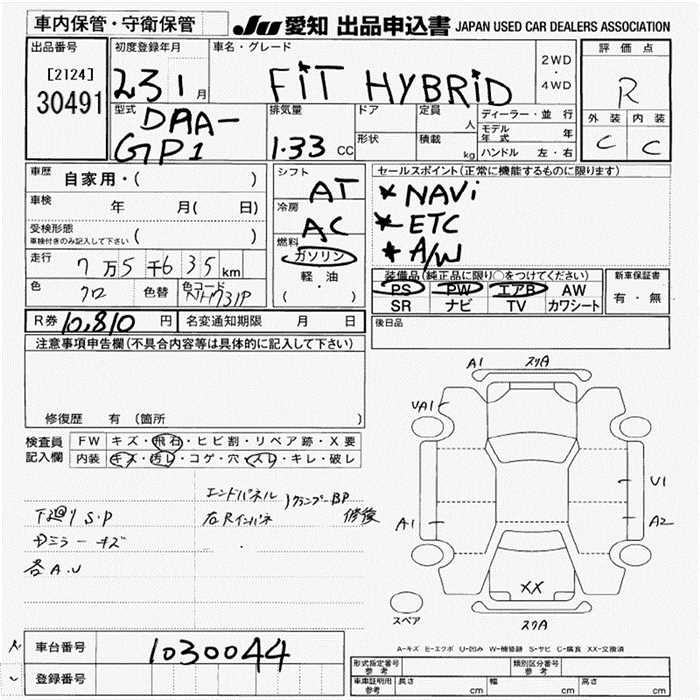 車内保管・守衛保管
JU 愛知 出品申込書 JAPAN USED CAR DEALERS ASSOCIATION
出品番号
[2124]
30491
初度登録年月
23 1 月
車名・グレード
FiT HYBRiD
2WD
・
4WD
評価点
R
外装 内装
C C
型式
DAA-
GP1
排気量
1.33 CC
ドア
形状
定員 人
積載 kg
ディーラー・並行
モデル年式 年
ハンドル 左・右
車歴 自家用・( )
車検 年 月( 日)
受検形態
車検付きのみ記入して下さい ( )
走行 7万5千635km
色 クロ 色替 色コード NH731P
シフト AT
冷房 AC
燃料
ガソリン
・
軽油
( )
セールスポイント(正常に機能するものに限ります)
* NAVi
* ETC
* A/W
装備品(純正品に限り○をつけてください)
PS PW エアB AW
SR ナビ TV カワシート
新車保証書
有・無
R券 10,810 円 名変通知期限 月 日
後日品
注意事項申告欄(不具合内容等は具体的に記入して下さい)
修復歴 有 (箇所 )
検査員
記入欄
FW キズ・飛石・ヒビ割・リペア跡・X要
内装 キズ・汚レ・コゲ・穴・スレ・キレ・破レ
エンドパネル
クランプーBP
右Rインパネ
修後
下廻り S.P
Dミラーキズ
各A.U
A1 スリA
UA1
U1
A1 A2
XX
スペア
スリA
A-キズ E-エクボ U-凹み W-補修跡 S-サビ C-腐食 XX-交換済
車台番号 1030044
登録番号
形式指定番号
参考
類別区分番号
参考
車庫証明用
参考
長さ cm 幅 cm 高さ cm